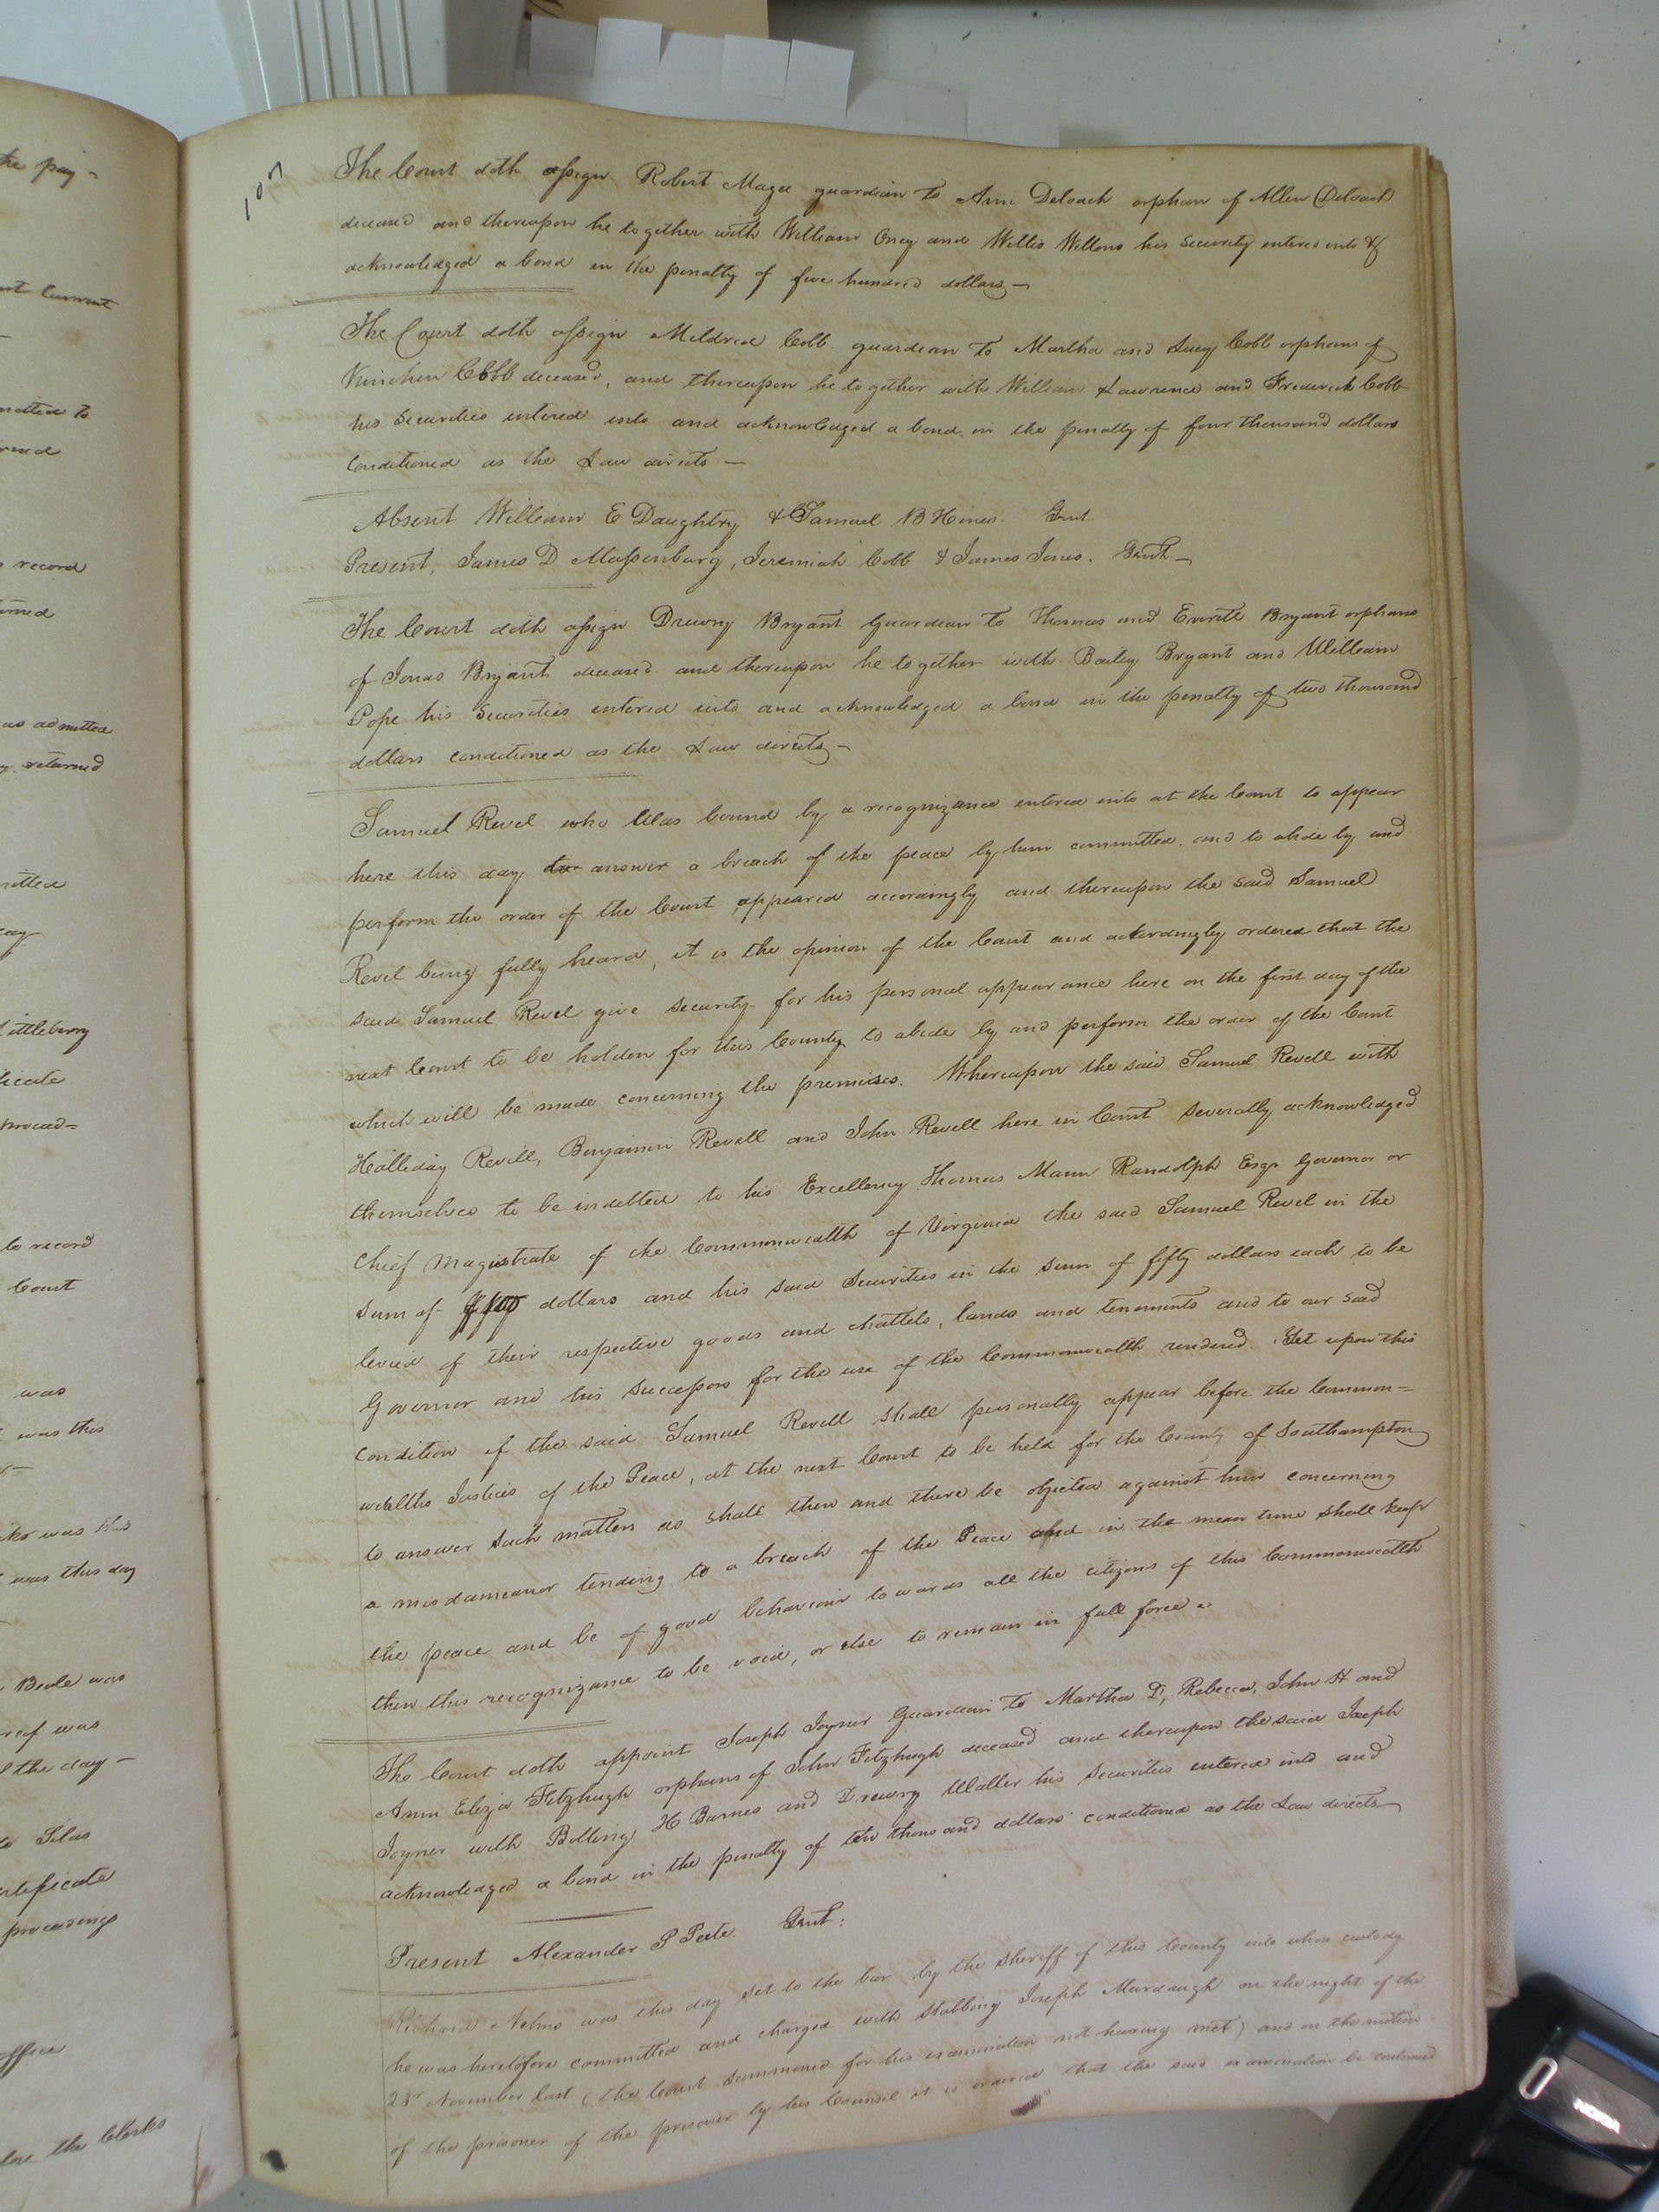 107
The Court doth assign Robert Magee guardian to Ann Deloach orphan of Allen Deloach
deceased and thereupon he together with William Oney and Willis Willons his Security entered into &
acknowledged a bond in the penalty of five hundred dollars —
The Court doth assign Mildred Cobb guardian to Martha and Lucy Cobb orphans of
Kinchen Cobb deceased, and thereupon he together with William Lawrence and Frederick Cobb
his Securities entered into and acknowledged a bond in the penalty of four thousand dollars
Conditioned as the Law directs —
Absent William E Daughtry & Samuel B Hines. Gent
Present, James D Massenburg, Jeremiah Cobb & James Jones. Gent —
The Court doth assign Drewry Bryant Guardian to Thomas and Everitt Bryant orphans
of Jonas Bryant deceased and thereupon he together with Bailey Bryant and William
Pope his Securities entered into and acknowledged a bond in the penalty of two thousand
dollars conditioned as the Law directs —
Samuel Revel who Was bound by a recognizance entered into at the Court to appear
here this day to answer a breach of the peace by him committed, and to abide by and
perform the order of the Court appeared accordingly and thereupon the said Samuel
Revel being fully heard, it is the opinion of the Court and accordingly ordered that the
said Samuel Revel give Security for his personal appearance here on the first day of the
next Court to be holden for this County to abide by and perform the order of the Court
which will be made concerning the premises. Whereupon the said Samuel Revell with
Halliday Revill, Benjamin Revell and John Revell here in Court Severally acknowledged
themselves to be indebted to his Excellency Thomas Mann Randolph Esqr Governor or
Chief Magistrate of the Commonwealth of Virginia the said Samuel Revel in the
Sum of $100 dollars and his said Securities in the Sum of fifty dollars each to be
levied of their respective goods and chattels, lands and tenements and to our Said
Governor and his Successors for the use of the Commonwealth rendered. Yet upon this
condition if the said Samuel Revell Shall personally appear before the Common=
wealths Justices of the Peace, at the next Court to be held for the County of Southampton
to answer Such matters as Shall then and there be objected against him concerning
a misdameanor tending to a breach of the Peace and in the mean time Shall keep
the peace and be of good behaviour towards all the citizens of this Commonwealth
then this recognizance to be void, or else to remain in full force.
The Court doth appoint Joseph Joyner Guardian to Martha D, Rebecca, John H and
Ann Eliza Fitzhugh orphans of John Fitzhugh deceased and thereupon the said Joseph
Joyner with Bolling H Barnes and Drewry Waller his Securities entered into and
acknowledged a bond in the penalty of ten thousand dollars conditioned as the Law directs
Present Alexander P Peete Gent:
Richard Nelms was this day Set to the bar by the Sheriff of this County into whose custody
he was heretofore committed and charged with Stabbing Joseph Murdaugh on the night of the
23d November last (the Court Summoned for his examination not having met) and on the motion
of the prisoner of the prisoner by his Counsel it is ordered that the said examination be continued
the pay=
Current
record
as admitted
returned
ittleberry
to record
Court
was
was this
was this day
Beale was
was
the day —
Silas
proceedings
office
the Clerks
NOKIA